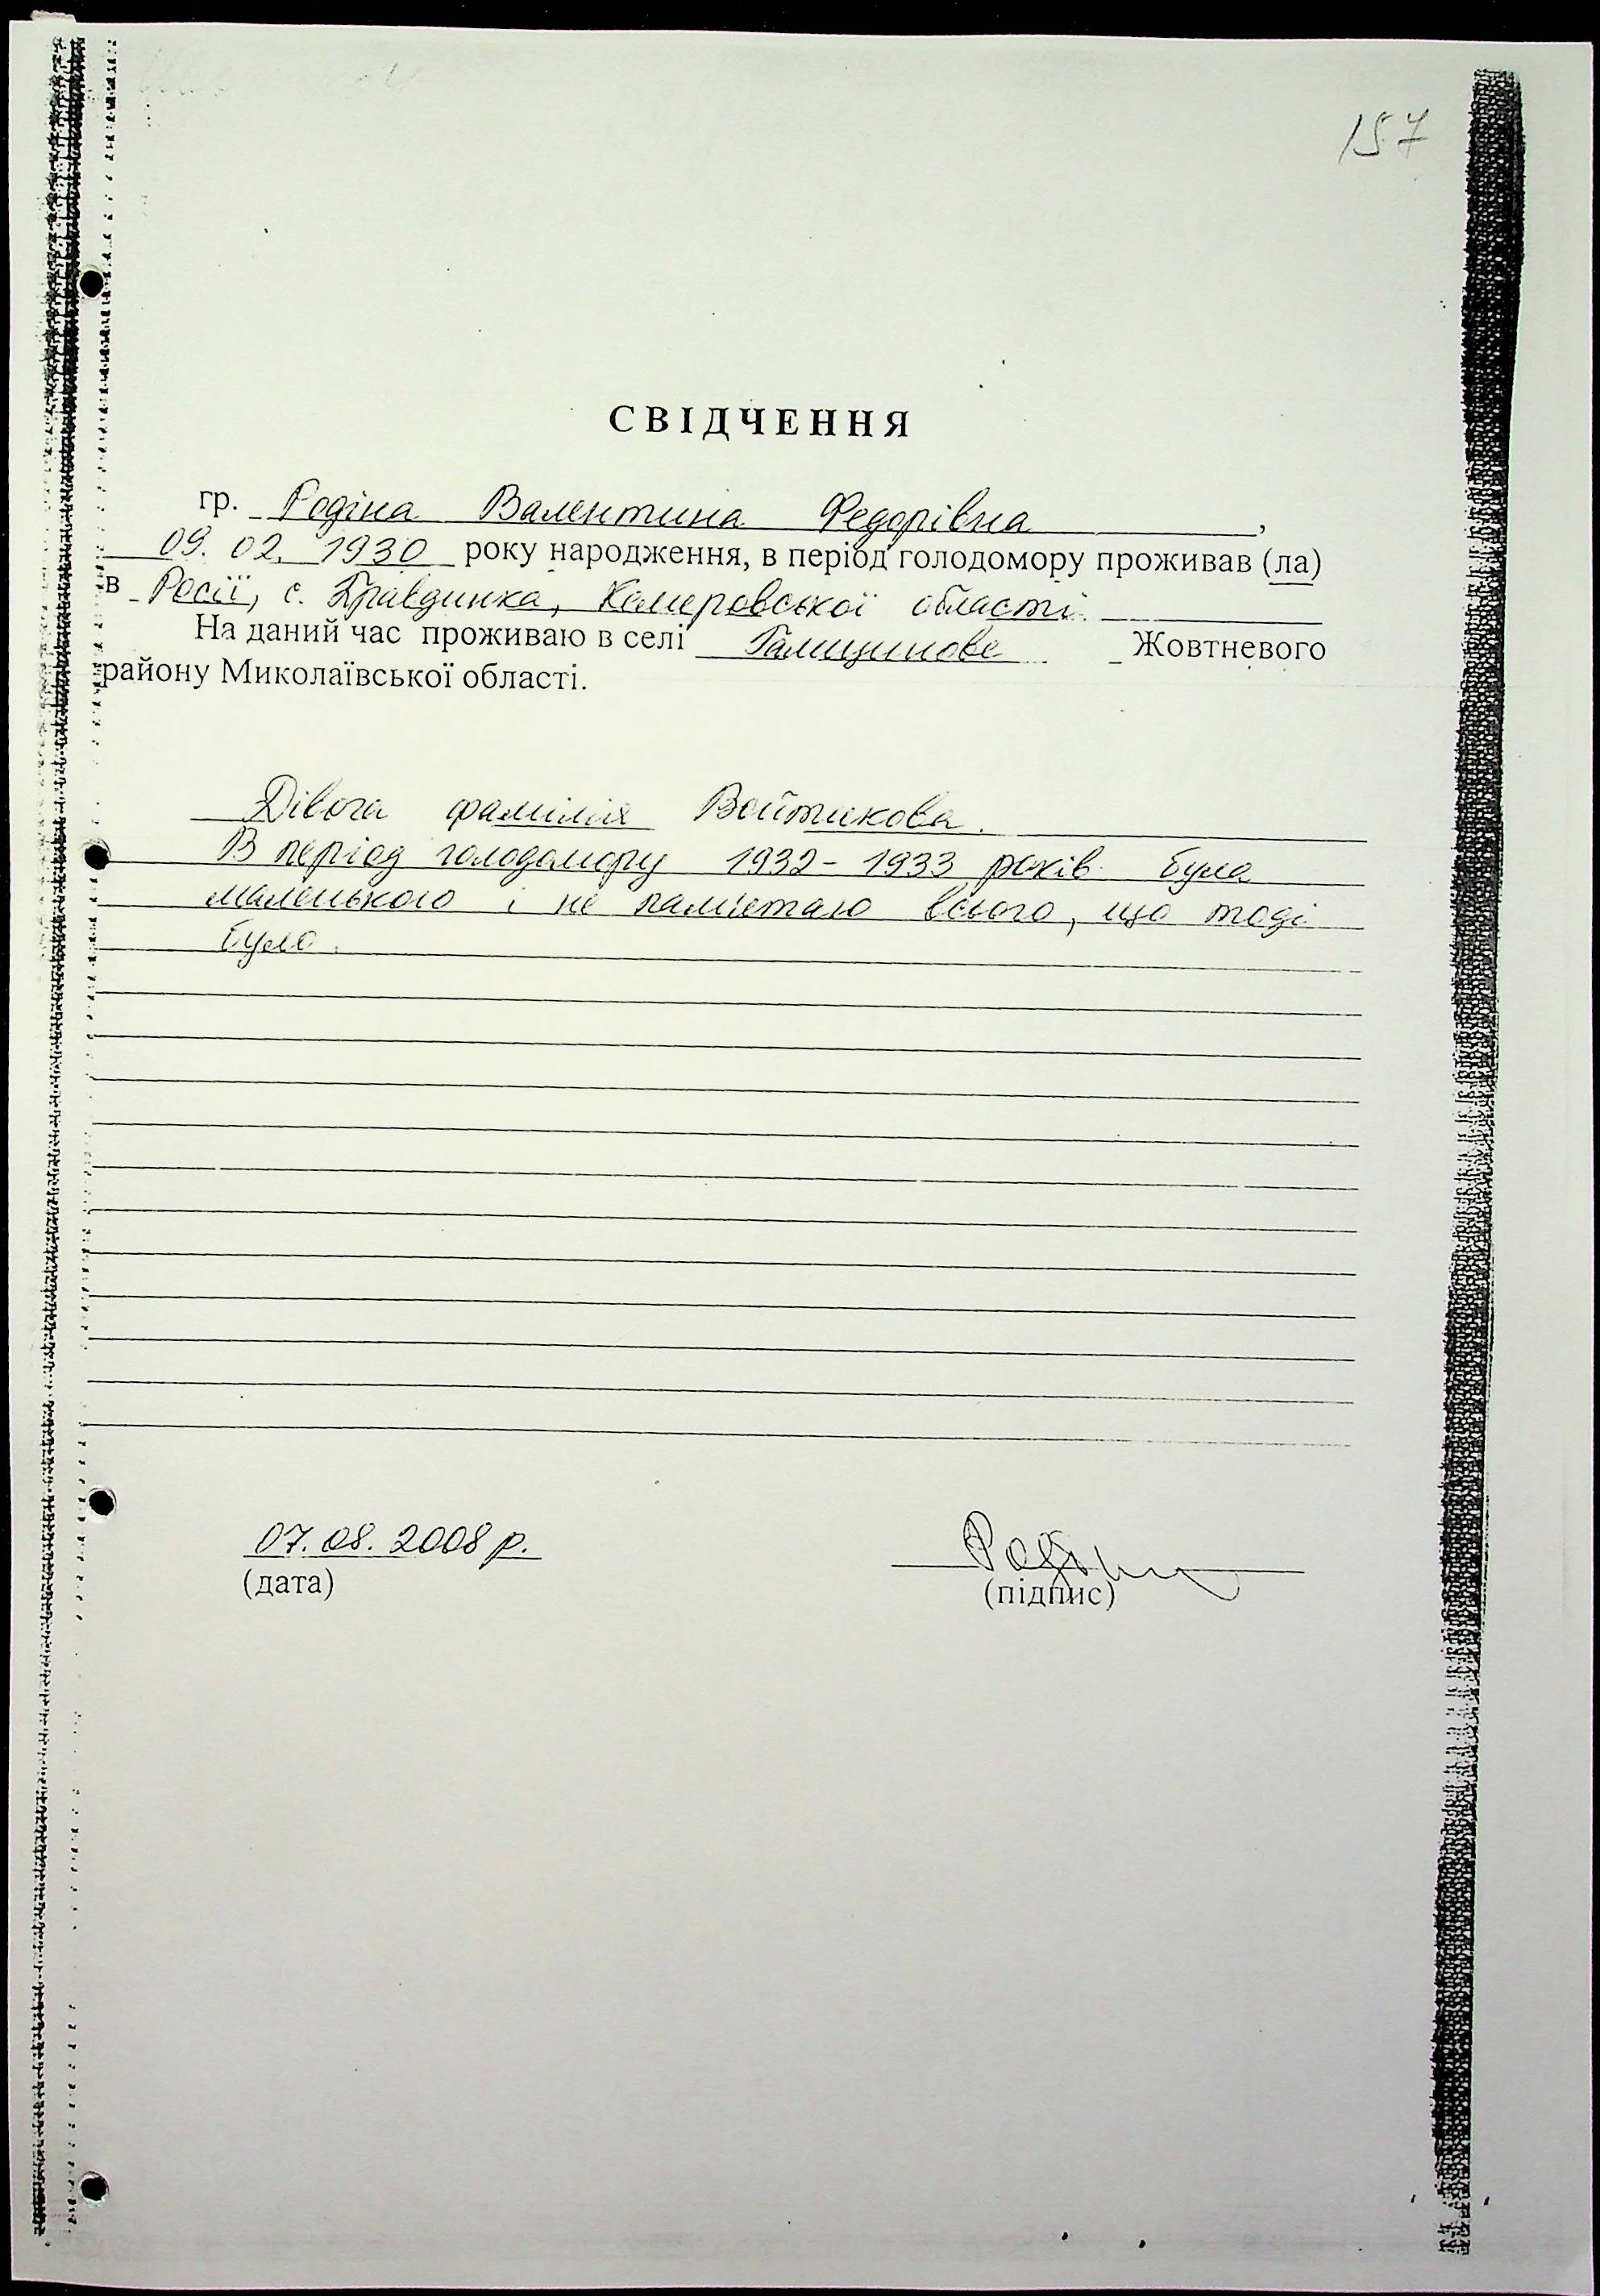 157
СВІДЧЕННЯ
гр. Родіна Валентина Федорівна,
09.02.1930 року народження, в період голодомору проживав (ла)
в Росії, с. Правдинка, Кемеровської області.
На даний час проживаю в селі Галицинове Жовтневого
району Миколаївської області.
Дівоча фамілія Войтикова.
В період голодомору 1932-1933 років була
маленькою і не пам'ятаю всього, що тоді
було.
07.08.2008 р.
(дата)
(підпис)